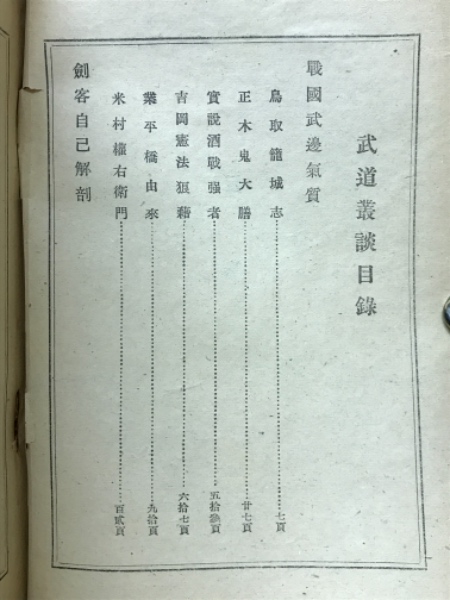 武道叢談目錄
戰國武邊氣質
鳥取籠城志…………七頁
正木鬼大膳…………廿七頁
實說酒戰强者…………五拾參頁
吉岡憲法狼藉…………六拾七頁
業平橋由來…………九拾頁
米村權右衛門…………百貳頁
劍客自己解剖